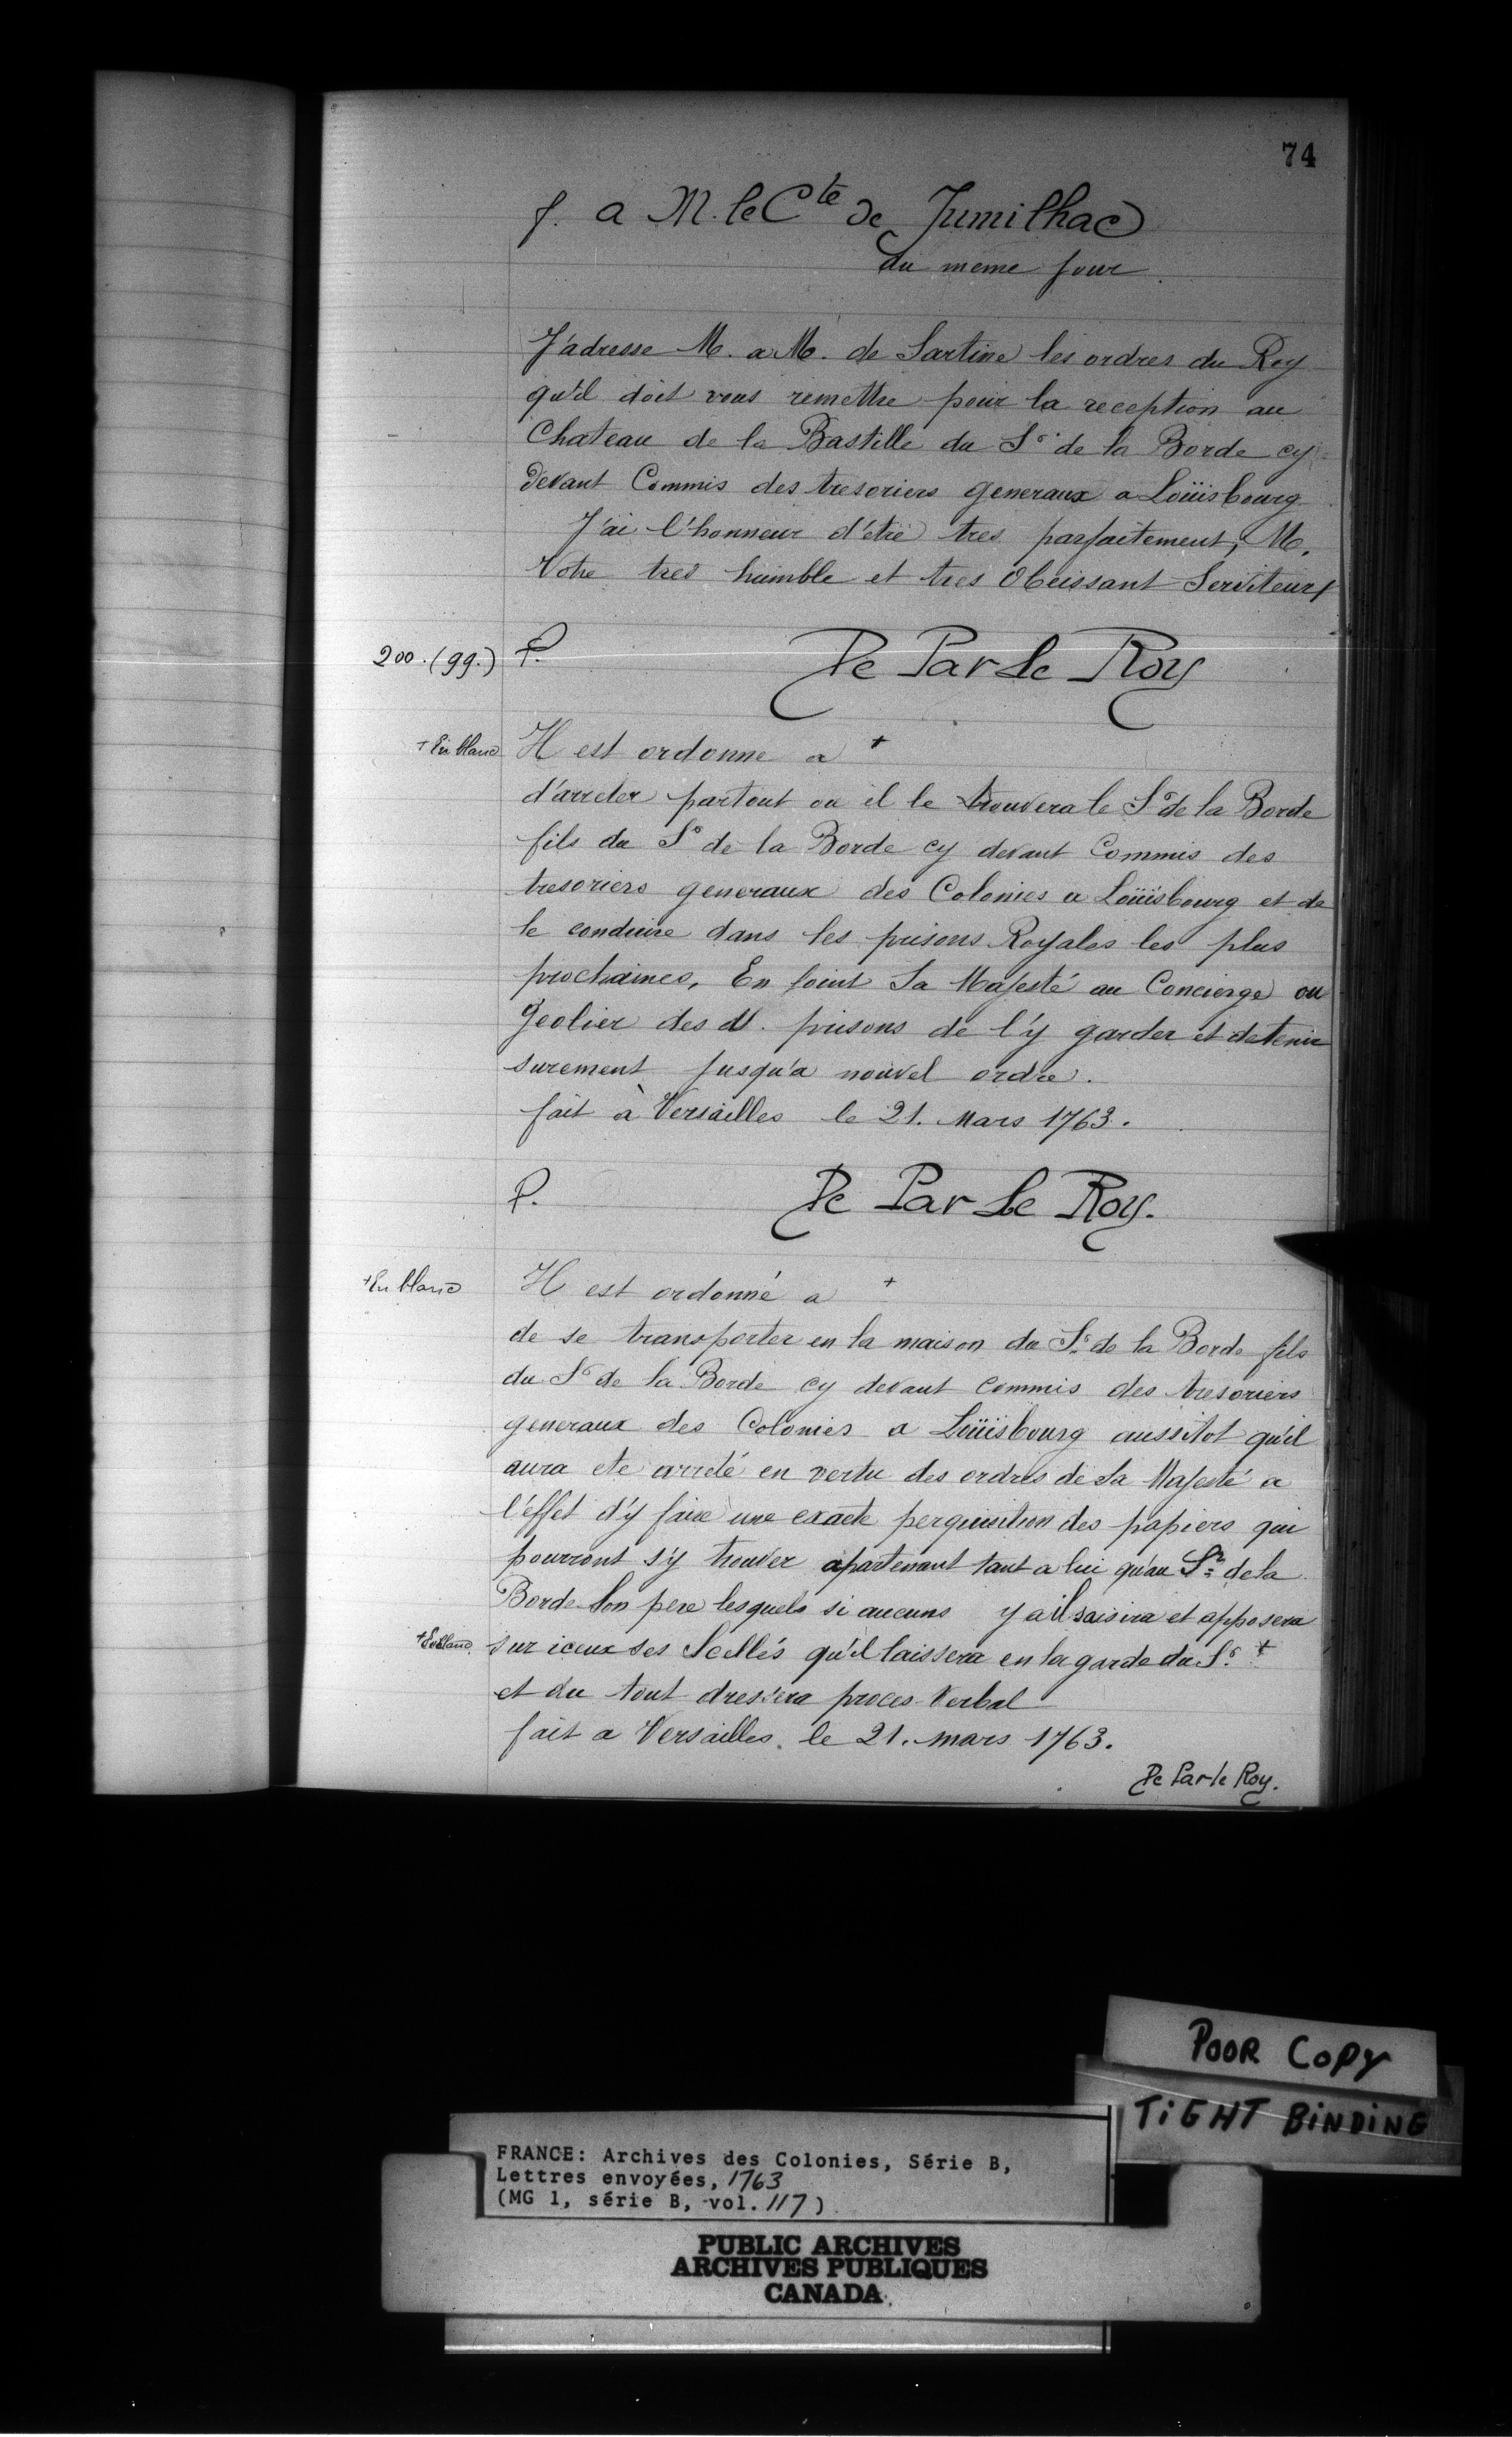 74
f. a M. le Cte de Jumilhac
du meme Jour
J'adresse M. a M. de Sartine les ordres du Roy
qu'il doit vous remettre pour la reception au
Chateau de la Bastille du Sr. de la Borde cy
devant Commis des tresoriers generaux a Loüisbourg
J'ai l'honneur d'etre tres parfaitement, M.
Votre tres humble et tres Obeissant Serviteur/
200. (99.) P. De Par Le Roy
+ En blanc Il est ordonne a +
d'arreter partout ou il le trouvera le Sr de la Borde
fils du Sr de la Borde cy devant Commis des
tresoriers generaux des Colonies a Loüisbourg et de
le conduire dans les prisons Royales les plus
prochaines, En Joint Sa Majesté au Concierge ou
Geolier des d. prisons de l'y garder et detenir
surement Jusqu'a nouvel ordre.
fait à Versailles le 21. Mars 1763.
P. De Par Le Roy.
+ En blanc Il est ordonné a +
de se transporter en la maison du Sr. de la Borde fils
du Sr de la Borde cy devant Commis des tresoriers
generaux des Colonies a Loüisbourg aussitot qu'il
aura ete arrêté en vertu des ordres de Sa Majesté a
l'effet d'y faire une exacte perquisition des papiers qui
pourront s'y trouver apartenant tant a lui qu'au Sr. de la
Borde Son pere lesquels si aucuns y a il saisira et apposera
+ En blanc. sur iceux ses Scellés qu'il laissera en la garde du Sr. +
et du tout dressera proces-Verbal
fait a Versailles. le 21. mars 1763.
De Par le Roy.
POOR COPY
TIGHT BINDING
FRANCE: Archives des Colonies, Série B,
Lettres envoyées, 1763
(MG 1, série B, vol. 117)
PUBLIC ARCHIVES
ARCHIVES PUBLIQUES
CANADA